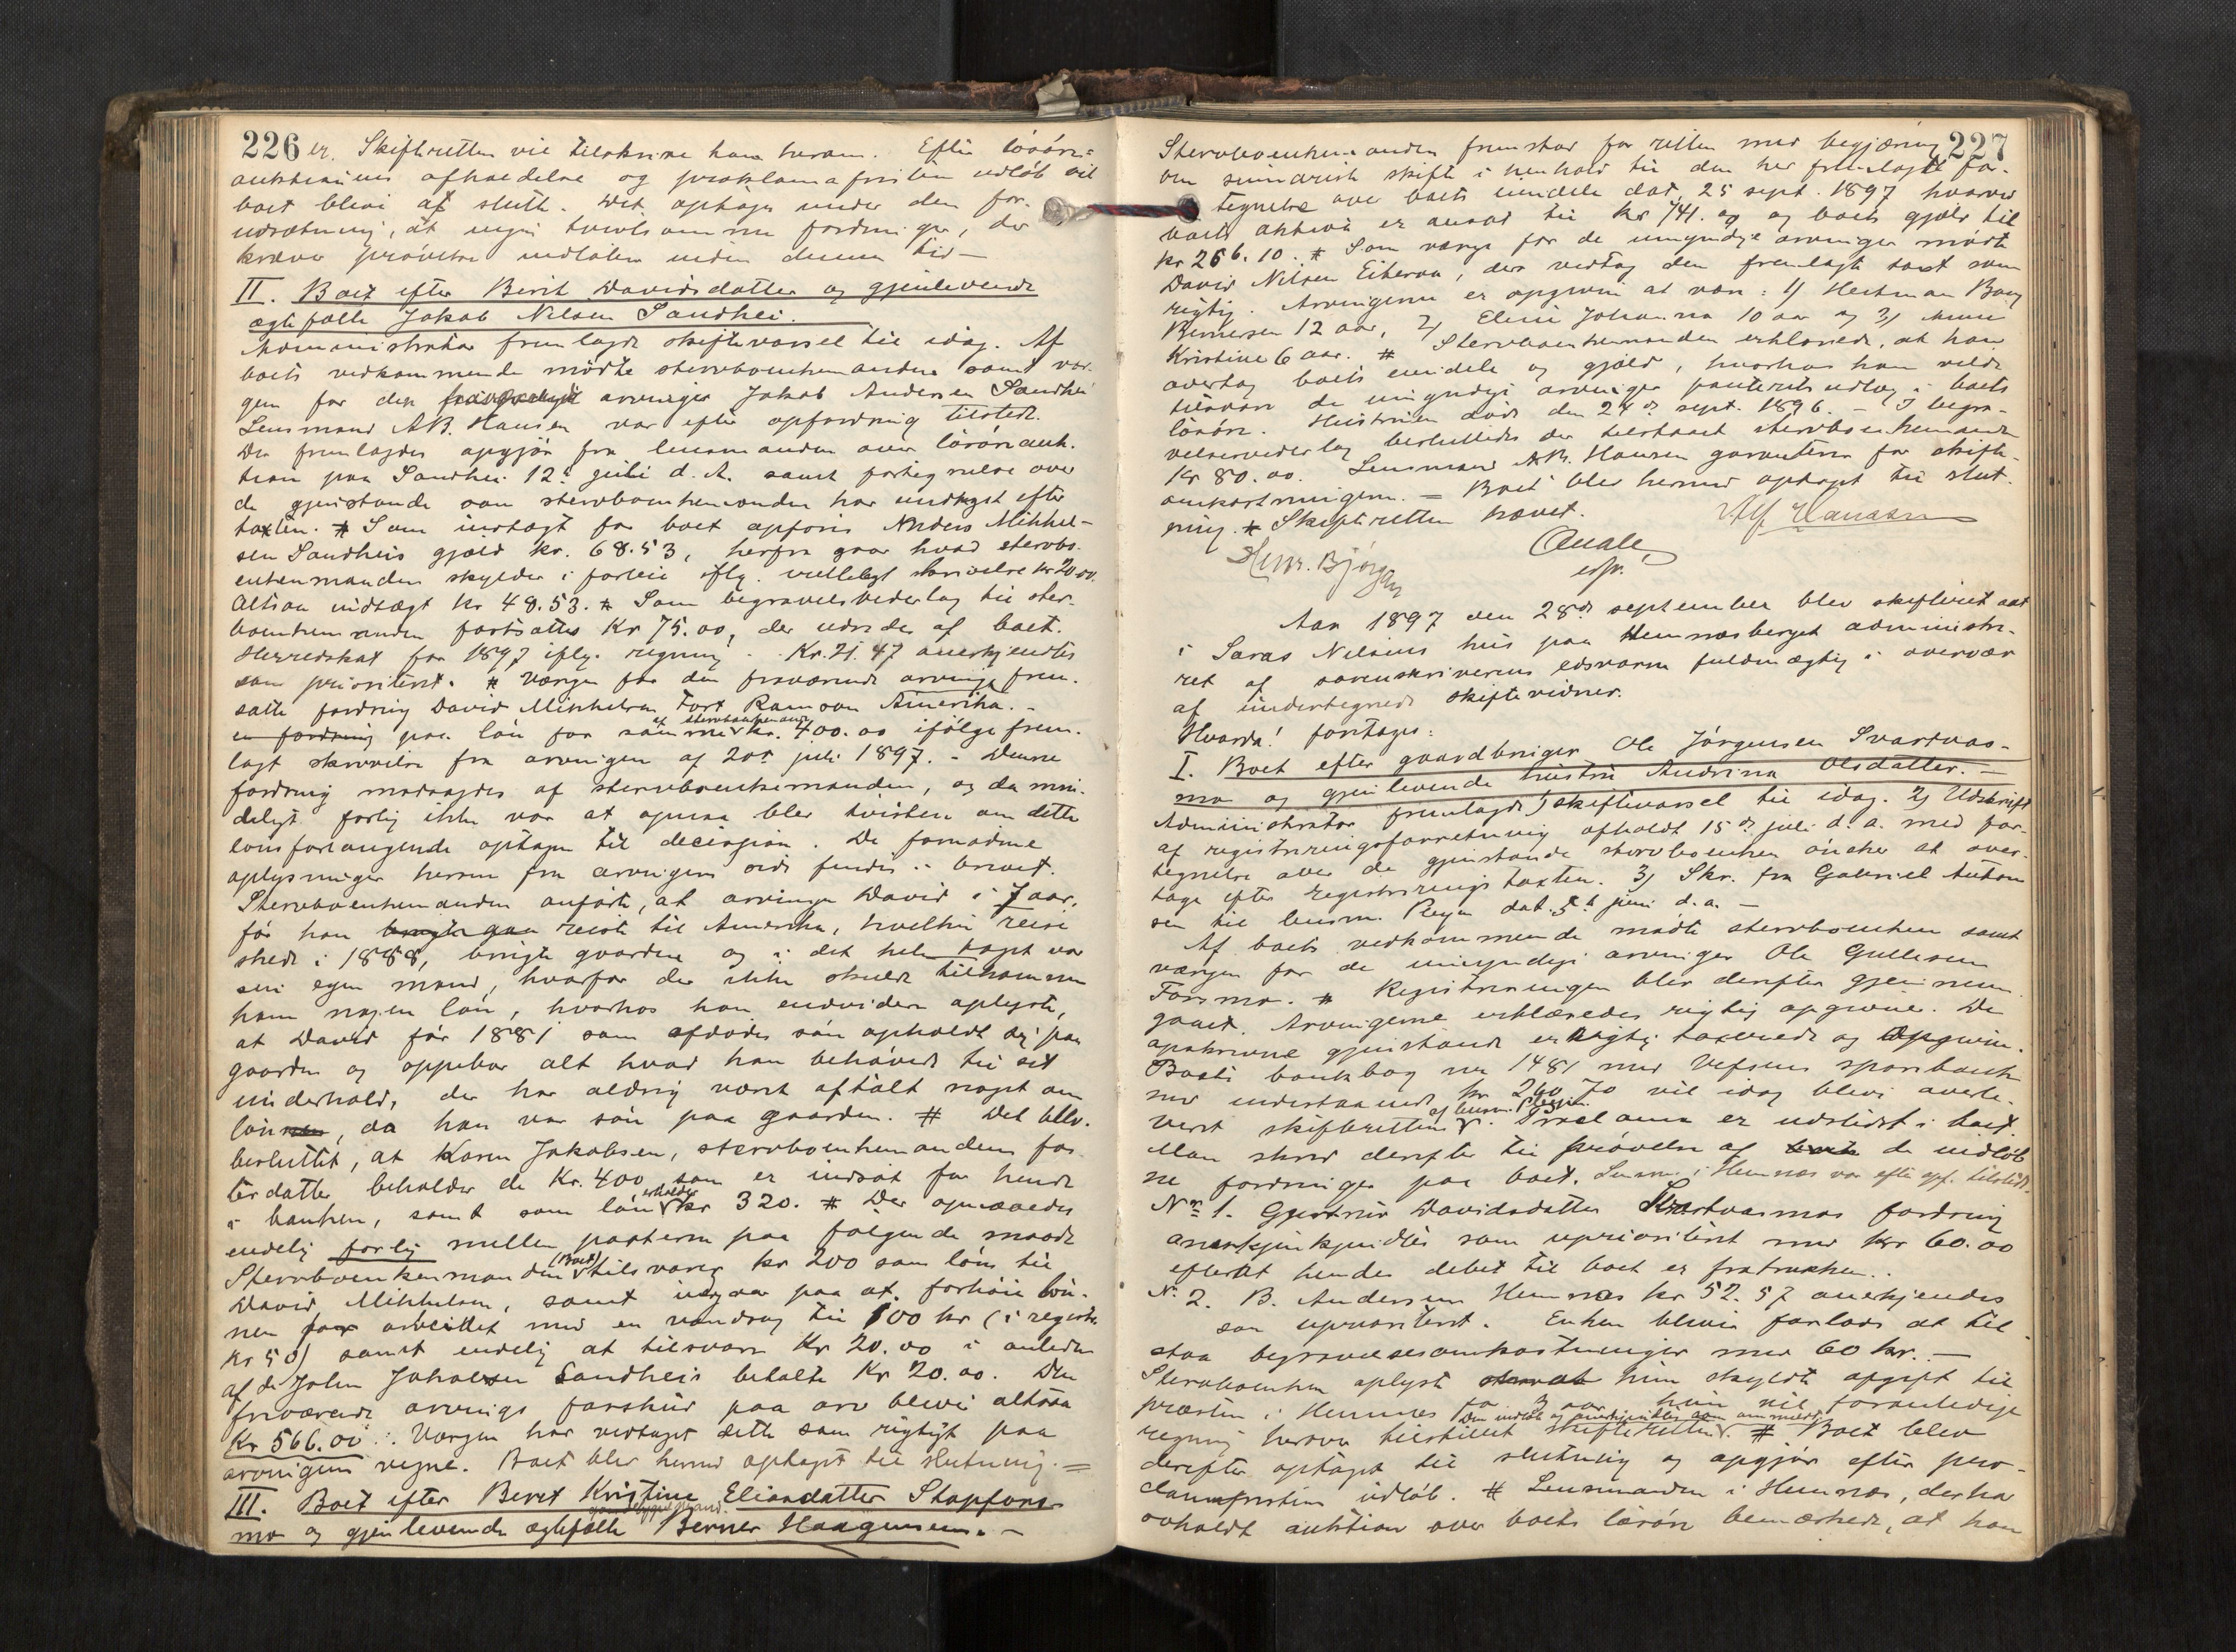 226 er. Skifteretten vil tilskrive ham herom. Efter løsøre=
auktionens afholdelse og proklamafristens udløb vil
boet blive at slutte. Det optages under den for-
udsætning, at ingen tvivlsomme fordringer, der
kræver prøvelse indløber inden denne tid —
II. Boet efter Berit Davidsdatter og gjenlevende
ægtefælle Jakob Nilsen Sandhei.
Administrator fremlagde skiftevarsel til idag. Af
boets vedkommende mødte stervboenkemanden samt vær-
gen for den fraværende arvinger Jakob Andersen Sandhei
Lensmand A.B. Hansen var efter opfordring tilstede.
Der fremlagdes opgjør fra lensmanden over løsøreauk-
tion paa Sandhei 12te juli d. A. samt fortegnelse over
de gjenstande som stervboenkemanden har undtaget efter
taxten. # Som indtægt for boet opføres Anders Mikkel-
sen Sandheis gjæld kr. 68.53, herfra gaar hvad stervbo-
enkemanden skylder i forleie iflg. vedlagt skrivelse kr 20.00.
Altsaa indtægt kr 48.53. # Som begravelsvederlag til ster-
boenkemanden fastsattes kr 75.00, der udredes af boet.
Herredskat for 1897 iflg. regning - Kr. 21.47 anerkjendtes
som prioriteret. # Værgen for den fraværende arvinge frem-
satte fordring David Mikkelsen Fort Ramson Amerika. -
en fordring paa løn for samme af stervboenkemand kr. 400.00 ifølge frem-
lagt skrivelse fra arvingen af 20de juli 1897. - Denne
fordring modsagdes af stervboenkemanden, og da min-
deligt forlig ikke var at opnaa blev tvisten om dette
lønsforlangende optagen til decision. De fornødne
oplysninger herom fra arvingens side findes i brevet.
Stervboenkemanden anførte, at arvinge David i 7 aar,
før han reiste til Amerika, hvilken reise
skede i 1888, brugte gaarden og i det hele taget var
sin egen mand, hvorfor der ikke skulde tilkomme
ham nogen løn, hvorhos han endvidere oplyste,
at David før 1881 som afdødes søn opholdt sig paa
gaarden og oppebar alt hvad han behøvede til sit
underhold, der har aldrig været aftalt noget om
løn, da han var søn paa gaarden. # Det blev
besluttet, at Karen Jakobsen, stervboenkemandens fos-
terdatter beholder de Kr. 400 som er indsat for hende
i banken, samt som løn erholder kr 320. # Der opnaaedes
endelig forlig mellem parterne paa følgende maade
Stervboenkemanden (Boet) tilsvarer kr 200 som løn til
David Mikkelsen, samt indgaar paa at forhøie løn-
nen for arbeidet med en vandsag til 100 kr (i registr.
kr 50) samt endelig at tilsvare Kr 20.00 i anledn
af de John Jakobsen Sandheis betalte Kr 20.00. Den
fraværende arvings forskud paa arv bliver altsaa
Kr 566.00. Værgen har vedtaget dette som rigtigt paa
arvingens vegne. Boet blev hermed optaget til slutning. =
III. Boet efter Beret Kristine Eliasdatter Stapfors-
mo og gjenlevende ægtefælle gaardbrugermand Berner Haagensen. -
227
Stervboenkemanden fremstod for retten med begjæring
om summarisk skifte i henhold til den her fremlagte for-
tegnelse over boets eiendele dat. 25 sept. 1897 hvorved
boets aktiva er ansat til kr 741.00 og boets gjæld til
kr 266.10. # Som værge for de umyndige arvinger mødte
David Nilsen Eiteraa, der vedtog den fremlagte taxt som
rigtig. Arvingerne er opgivne at være: 1/ Hertman Bang
Bernersen 12 aar, 2/ Eline Johanna 10 aar og 3/ Anne
Kristine 6 aar. # Stervboenkemanden erklærede, at han
overtog boets eiendele og gjæld, hvorhos han vilde
tilsvare de umyndige arvinger panteretsudlæg i boets
løsøre. Hustruen døde den 24de sept. 1896. - I begra-
velsesvederlag besluttedes der tilstaaet stervboenkemanden
Kr 80.00. Lensmand A.B. Hansen garanterer for skifte-
omkostningerne. = Boet blev hermed optaget til slut-
ning. # Skifteretten hævet.
Alf Hanssen
Quale
edsv.
Henr. Bjørgan
Aar 1897 den 28de september blev skifteret sat
i Saras Nilsens hus paa Hemnæsberget administre-
ret af sorenskriverens edsvorne fuldmægtig i overvær
af undertegnede skiftevidner.
Hvorda! foretages:
I. Boet efter gaardbruger Ole Jørgensen Svartvas-
mo og gjenlevende hustru Andrina Olsdatter. -
Administrator fremlagde 1) skiftevarsel til idag. 2) Udskrift
af registreringsforretning afholdt 15de juli d. a. med for-
tegnelse over de gjenstande stervboenken ønsker at over-
tage efter registreringstaxten. 3) Skr. fra Gabriel Anton
sen til lensm. Pleym dat. 5te juni d. a. -
Af boets vedkommende mødte stervboenken samt
værgen for de umyndige arvinger Ole Gullesen
Forsmo. # Registreringen blev derefter gjennem-
gaaet. Arvingerne erklæredes rigtig opgivne. De
opskrevne gjenstande er rigtig taxerede og opgivne.
Boets bankbog no 1481 med Vefsens sparebank
med indestaaende kr 260.70 vil idag blive overle-
veret skifteretten af lensm. Pleym. Proclama er udstedt i boet.
Man skred derefter til prøvelse af de indløb
ne fordringer paa boet. Lensm. i Hemnæs var efter opf. tilstede.
No 1. Gjertrud Davidsdatter Svartvasmos fordring
anerkjendtes som uprioriteret med kr 60.00
efterat hendes debet til boet er fratrukken..
No 2. B. Andersen Hemnæs kr 52.57 anerkjendes
som uprioriteret. Enken blev forlods at til-
staa begravelsesomkostninger med 60 kr. —
Stervboenken oplyste hun skyldte afgift til
præsten i Hemnæs for 3 aar hun vil foranledige
regning herover tilstillet skifteretten. Den indløb og anerkjendtes som anmeldt. # Boet blev
derefter optaget til slutning og opgjør efter pro-
clamafristens udløb. # Lensmanden i Hemnæs, der har
avholdt auktion over boets løsøre bemærkede, at han